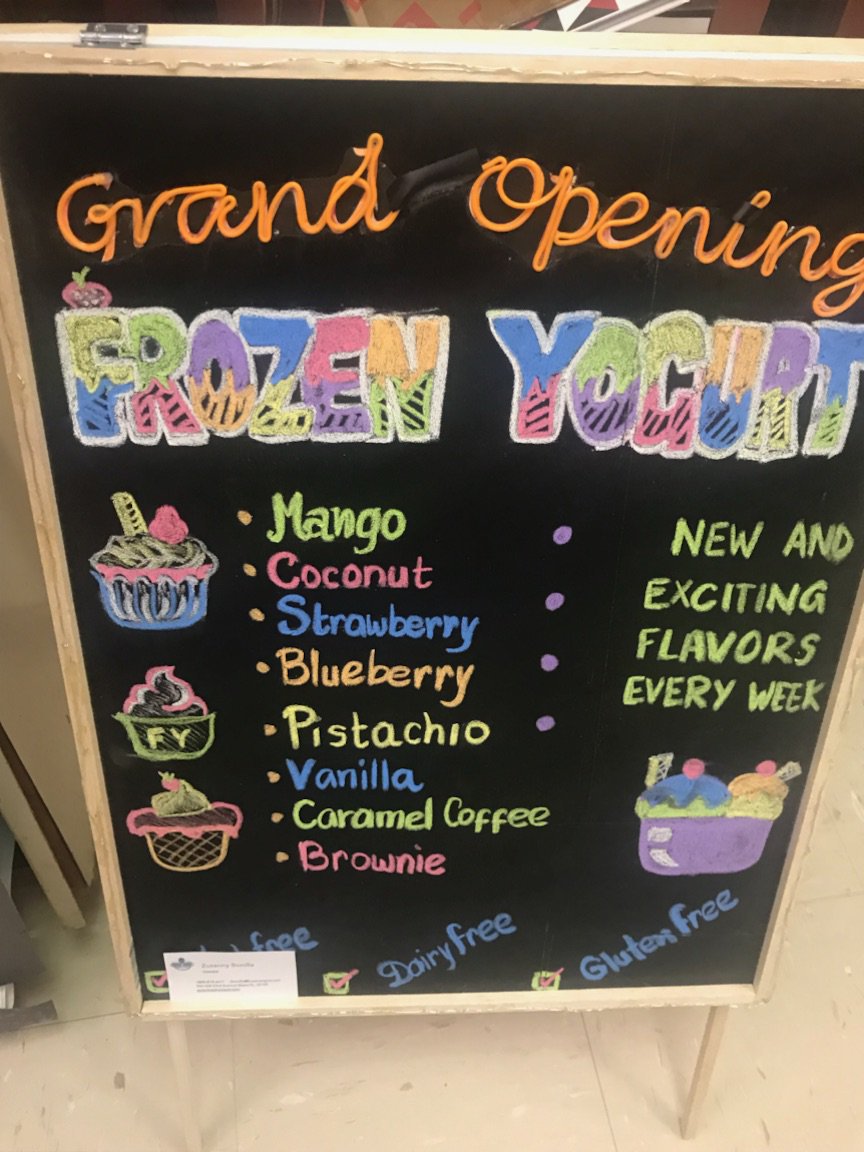 Grand Opening
FROZEN YOGURT
Mango
Coconut
Strawberry
Blueberry
Pistachio
Vanilla
Caramel Coffee
Brownie
NEW AND
EXCITING
FLAVORS
EVERY WEEK
FY
free
Dairy free
Gluten free